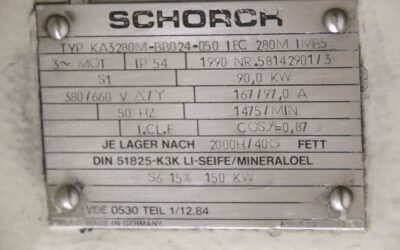 SCHORCH
TYP KA3280M-BB024-050 IEC 280M IMB5
3~ MOT IP 54 1990 NR.58142901/3
S1 90,0 KW
380/660 V Δ/Y 167/97,0 A
50 HZ 1475/MIN
I.CL.F COSφ=0,87
JE LAGER NACH 2000H/40G FETT
DIN 51825-K3K LI-SEIFE/MINERALOEL
S6 15% 150 KW
VDE 0530 TEIL 1/12.84
MADE IN GERMANY